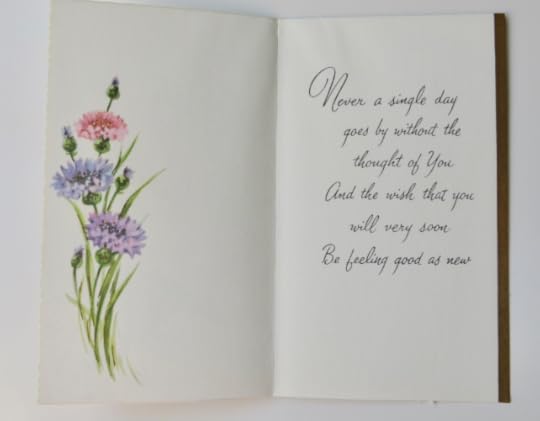 Never a single day
goes by without the
thought of You
And the wish that you
will very soon
Be feeling good as new